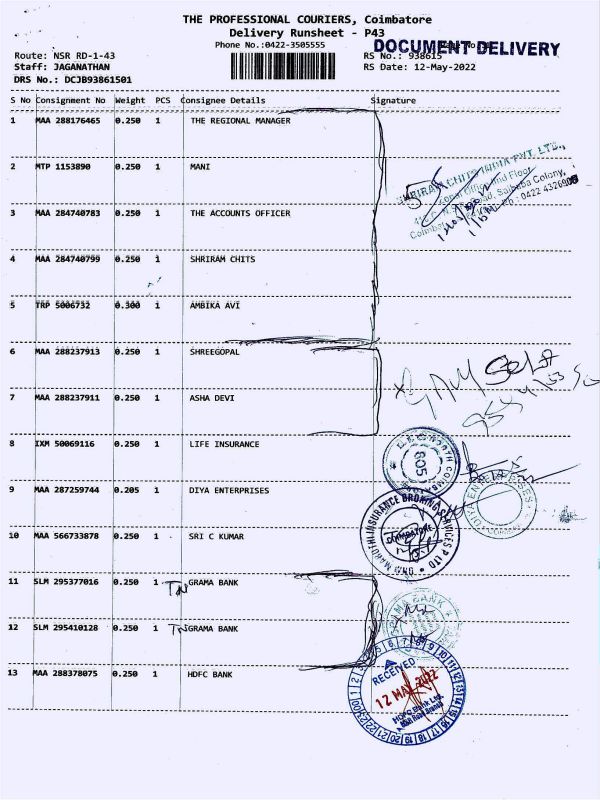 THE PROFESSIONAL COURIERS, Coimbatore
Delivery Runsheet - P43
Phone No.:0422-3505555
DOCUMENT DELIVERY
Route: NSR RD-1-43
RS No.: 938615
Staff: JAGANATHAN
RS Date: 12-May-2022
DRS No.: DCJB93861501
S No Consignment No Weight PCS Consignee Details Signature
1 MAA 288176465 0.250 1 THE REGIONAL MANAGER
2 MTP 1153890 0.250 1 MANI
3 MAA 284740783 0.250 1 THE ACCOUNTS OFFICER
4 MAA 284740799 0.250 1 SHRIRAM CHITS
5 TRP 5006732 0.300 1 AMBIKA AVI
6 MAA 288237913 0.250 1 SHREEGOPAL
7 MAA 288237911 0.250 1 ASHA DEVI
8 IXM 50069116 0.250 1 LIFE INSURANCE
9 MAA 287259744 0.205 1 DIYA ENTERPRISES
10 MAA 566733878 0.250 1 SRI C KUMAR
11 SLM 295377016 0.250 1 TN GRAMA BANK
12 SLM 295410128 0.250 1 TN GRAMA BANK
13 MAA 288378075 0.250 1 HDFC BANK
CHITS INDIA PVT. LTD.,
Floor
Road, Saibaba Colony,
Ph: 0422
805
DIYA ENTERPRISES
MARUTHI INSURANCE BROKING SERVICES P LTD
COIMBATORE
GRAMA BANK
RECEIVED
12 MAY 2022
HDFC Bank Ltd.